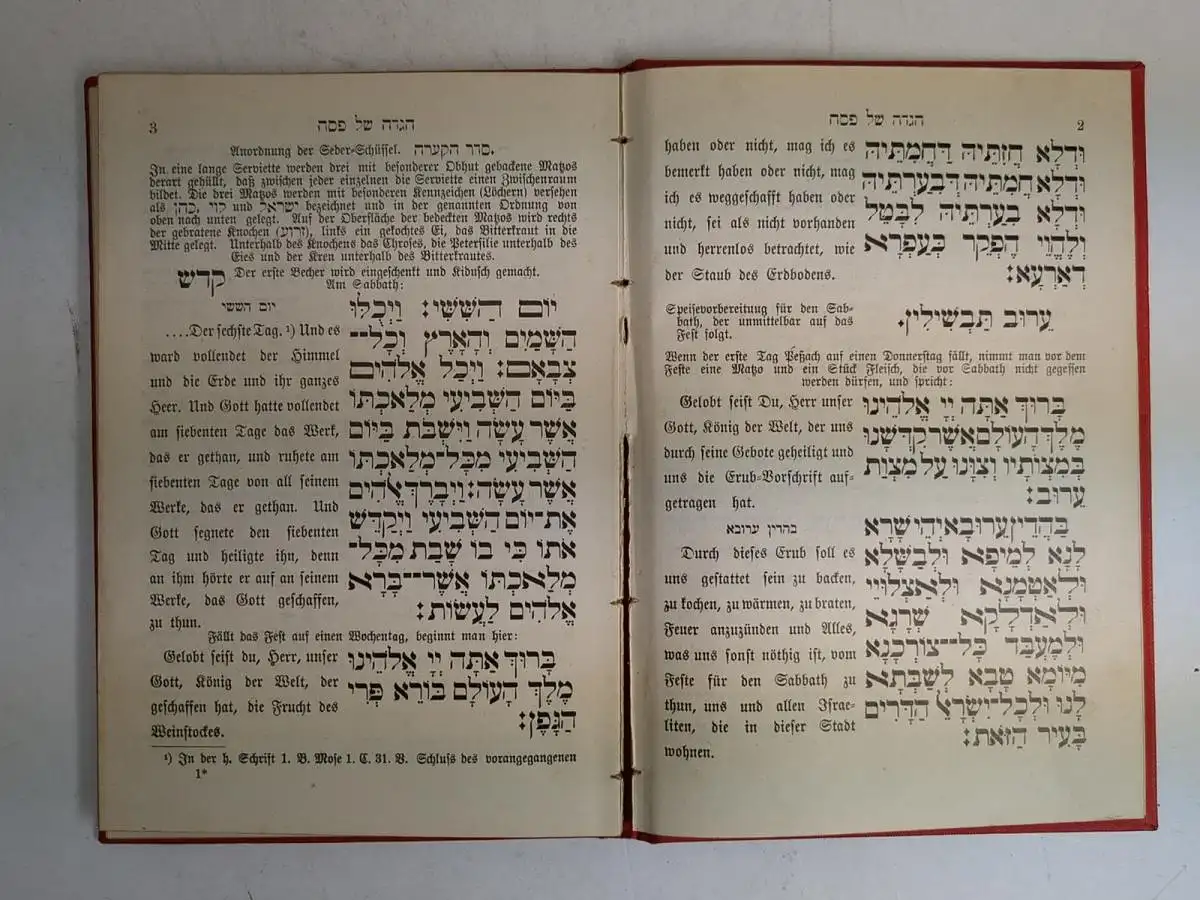 הגדה של פסח
2
וּדְלָא חֲזִתֵּיהּ דַּחֲמִתֵּיהּ
וּדְלָא חֲמִתֵּיהּ דְּבִעַרְתֵּיהּ
וּדְלָא בִעַרְתֵּיהּ לִבָּטֵל
וְלֶהֱוֵי הֶפְקֵר כְּעַפְרָא
דְאַרְעָא׃
haben oder nicht, mag ich es
bemerkt haben oder nicht, mag
ich es weggeschafft haben oder
nicht, sei als nicht vorhanden
und herrenlos betrachtet, wie
der Staub des Erdbodens.
עֵרוּב תַּבְשִׁילִין.
Speisevorbereitung für den Sab-
bath, der unmittelbar auf das
Fest folgt.
Wenn der erste Tag Peßach auf einen Donnerstag fällt, nimmt man vor dem
Feste eine Matzo und ein Stück Fleisch, die vor Sabbath nicht gegessen
werden dürfen, und spricht:
בָּרוּךְ אַתָּה יְיָ אֱלֹהֵינוּ
מֶלֶךְ הָעוֹלָם אֲשֶׁר קִדְּשָׁנוּ
בְּמִצְוֹתָיו וְצִוָּנוּ עַל מִצְוַת
עֵרוּב׃
Gelobt seist Du, Herr unser
Gott, König der Welt, der uns
durch seine Gebote geheiligt und
uns die Erub-Vorschrift auf-
getragen hat.
בַּהֲדֵין עֵרוּבָא יְהֵי שָׁרָא
לָנָא לְמֵיפָא וּלְבַשָּׁלָא
וּלְאַטְמָנָא וּלְאַצְלוּיֵי
וּלְאַדְלָקָא שְׁרָגָא
וּלְמֶעְבַּד כָּל־צוֹרְכָנָא
מִיּוֹמָא טָבָא לְשַׁבְּתָא
לָנוּ וּלְכָל־יִשְׂרָאֵל הַדָּרִים
בָּעִיר הַזֹּאת׃
בהדין ערובא
Durch dieses Erub soll es
uns gestattet sein zu backen,
zu kochen, zu wärmen, zu braten,
Feuer anzuzünden und Alles,
was uns sonst nöthig ist, vom
Feste für den Sabbath zu
thun, uns und allen Israe-
liten, die in dieser Stadt
wohnen.
3
הגדה של פסח
Anordnung der Seder-Schüssel. סדר הקערה.
In eine lange Serviette werden drei mit besonderer Obhut gebackene Matzos
derart gehüllt, daß zwischen jeder einzelnen die Serviette einen Zwischenraum
bildet. Die drei Matzos werden mit besonderen Kennzeichen (Löchern) versehen
als כהן, לוי und ישראל bezeichnet und in der genannten Ordnung von
oben nach unten gelegt. Auf der Oberfläche der bedeckten Matzos wird rechts
der gebratene Knochen (זרוע), links ein gekochtes Ei, das Bitterkraut in die
Mitte gelegt. Unterhalb des Knochens das Chroses, die Petersilie unterhalb des
Eies und der Kren unterhalb des Bitterkrautes.
קדש Der erste Becher wird eingeschenkt und Kidusch gemacht.
Am Sabbath:
יוֹם הַשִּׁשִּׁי׃ וַיְכֻלּוּ
הַשָּׁמַיִם וְהָאָרֶץ וְכָל־
צְבָאָם׃ וַיְכַל אֱלֹהִים
בַּיּוֹם הַשְּׁבִיעִי מְלַאכְתּוֹ
אֲשֶׁר עָשָׂה וַיִּשְׁבֹּת בַּיּוֹם
הַשְּׁבִיעִי מִכָּל־מְלַאכְתּוֹ
אֲשֶׁר עָשָׂה׃ וַיְבָרֶךְ אֱלֹהִים
אֶת־יוֹם הַשְּׁבִיעִי וַיְקַדֵּשׁ
אֹתוֹ כִּי בוֹ שָׁבַת מִכָּל־
מְלַאכְתּוֹ אֲשֶׁר־בָּרָא
אֱלֹהִים לַעֲשׂוֹת׃
יום הששי
....Der sechste Tag. ¹) Und es
ward vollendet der Himmel
und die Erde und ihr ganzes
Heer. Und Gott hatte vollendet
am siebenten Tage das Werk,
das er gethan, und ruhete am
siebenten Tage von all seinem
Werke, das er gethan. Und
Gott segnete den siebenten
Tag und heiligte ihn, denn
an ihm hörte er auf an seinem
Werke, das Gott geschaffen,
zu thun.
Fällt das Fest auf einen Wochentag, beginnt man hier:
בָּרוּךְ אַתָּה יְיָ אֱלֹהֵינוּ
מֶלֶךְ הָעוֹלָם בּוֹרֵא פְּרִי
הַגָּפֶן׃
Gelobt seist du, Herr, unser
Gott, König der Welt, der
geschaffen hat, die Frucht des
Weinstockes.
¹) In der h. Schrift 1. B. Mose 1. C. 31. V. Schluß des vorangegangenen
1*